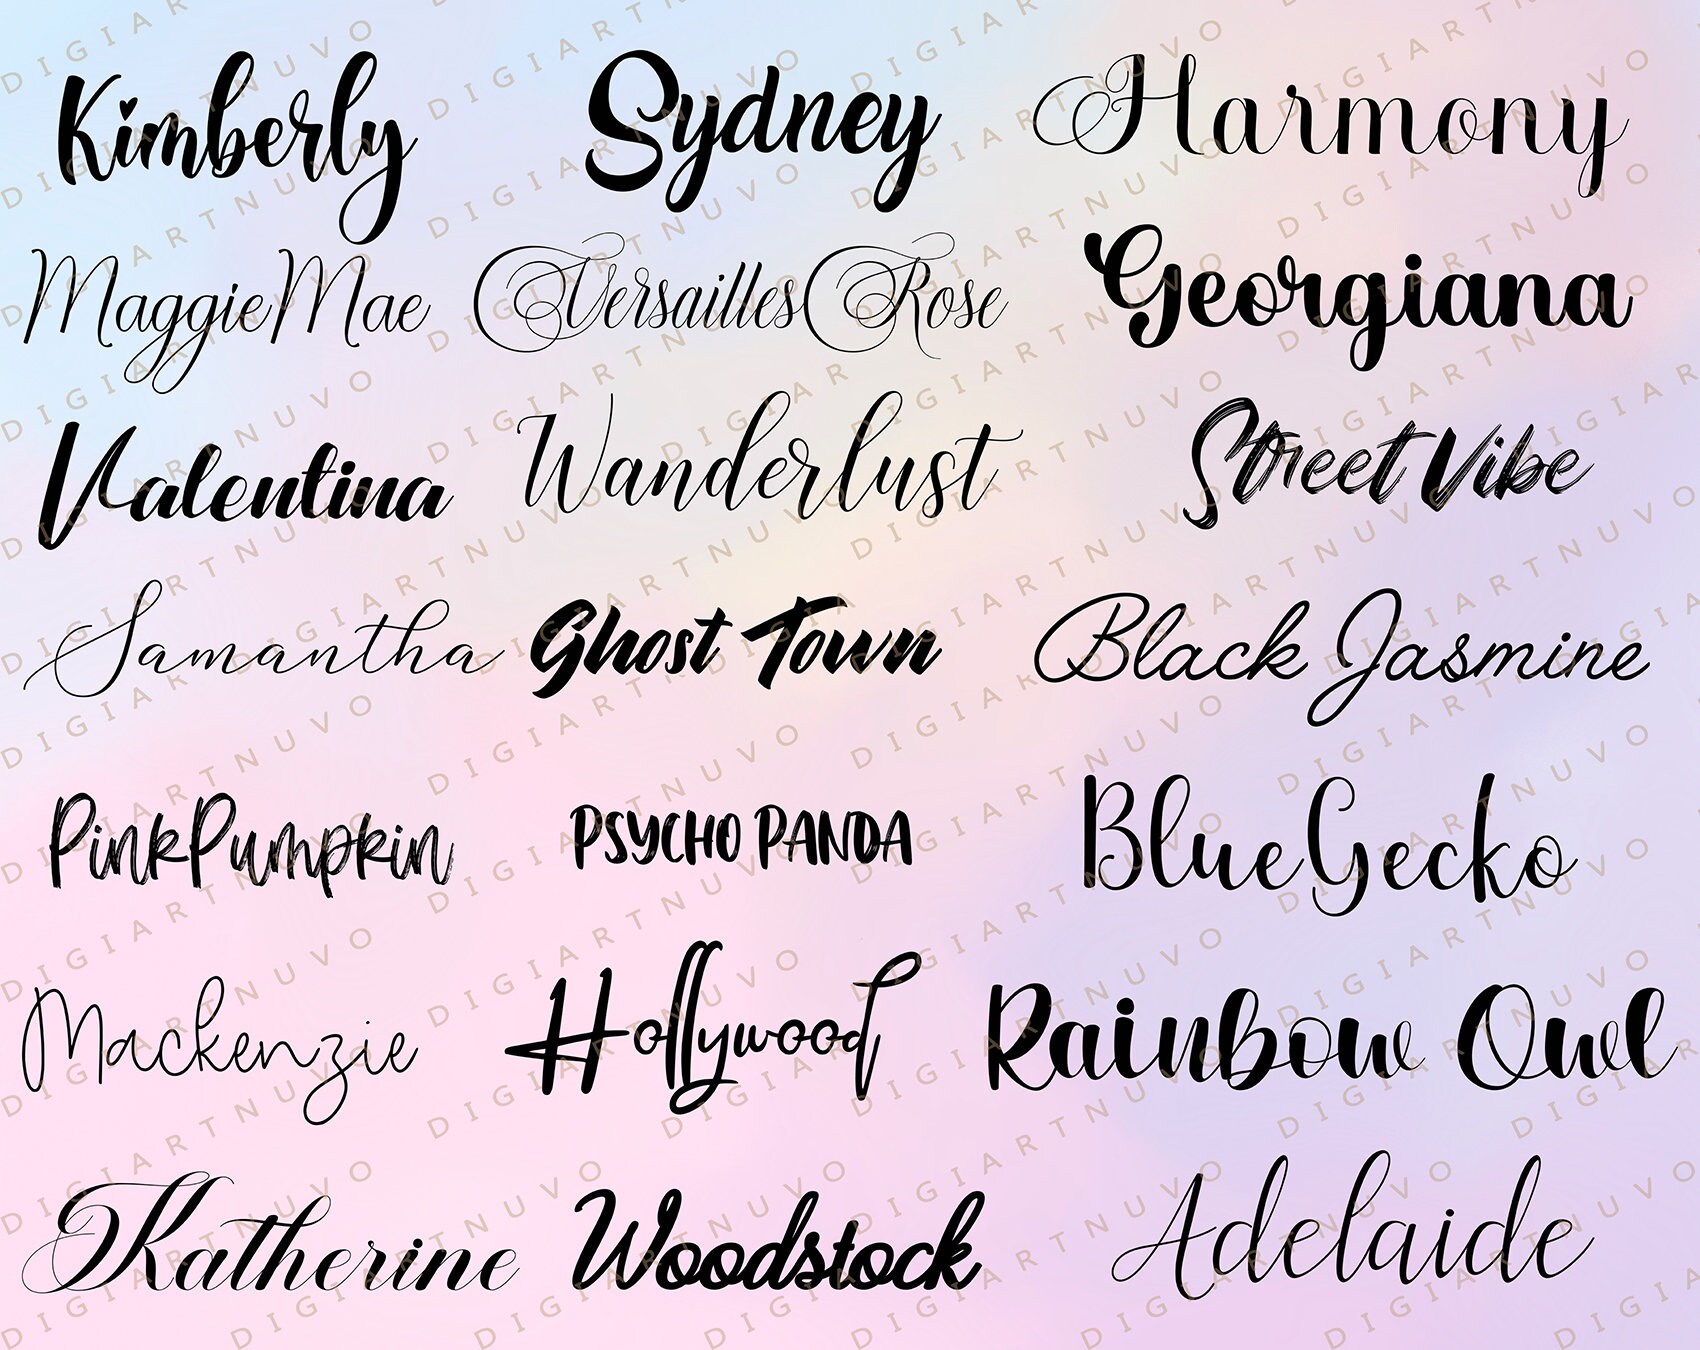 Kimberly Sydney Harmony
MaggieMae VersaillesRose Georgiana
Valentina Wanderlust Street Vibe
Samantha Ghost Town Black Jasmine
PinkPumpkin PSYCHO PANDA BlueGecko
Mackenzie Hollywood Rainbow Owl
Katherine Woodstock Adelaide
DIGIARTNUVO